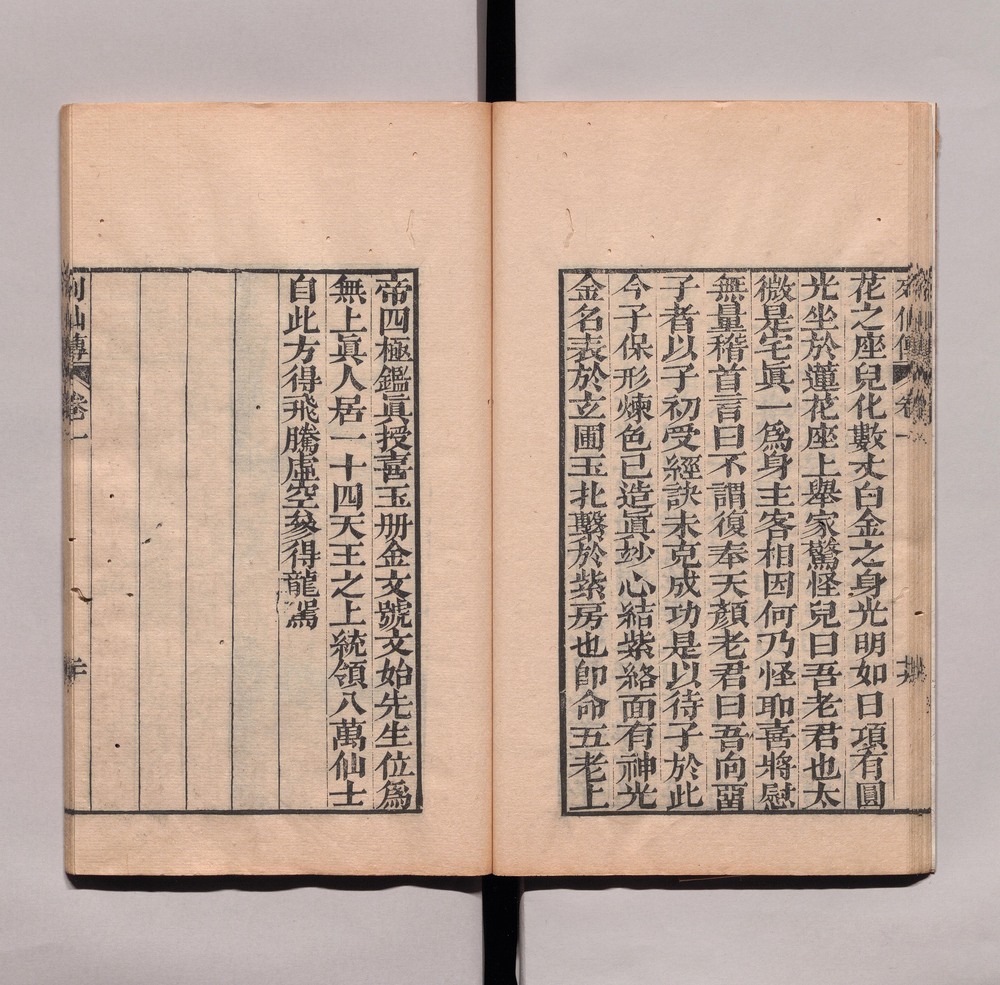 花之座兒化數丈白金之身光明如日項有圓
光坐於蓮花座上舉家驚怪兒曰吾老君也太
微是宅眞一爲身主客相因何乃怪耶喜將慰
無量稽首言曰不謂復奉天顏老君曰吾向畱
子者以子初受經訣未克成功是以待子於此
今子保形煉色已造眞妙心結紫絡面有神光
金名表於玄圃玉札繫於紫房也卽命五老上
帝四極鑑眞授喜玉册金文號文始先生位爲
無上眞人居二十四天王之上統領八萬仙士
自此方得飛騰虛空參得龍駕
列仙傳 卷一